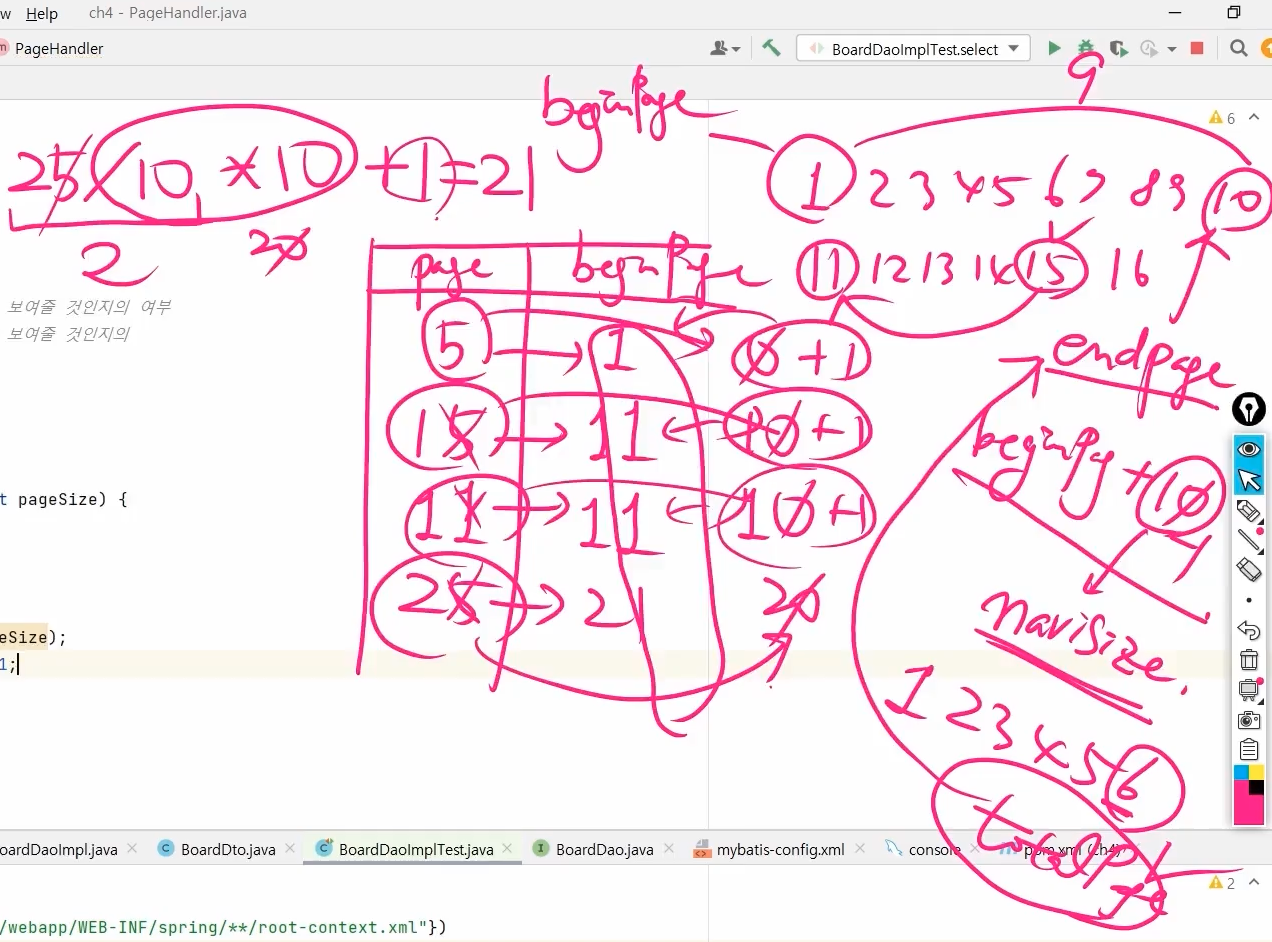 w Help ch4 - PageHandler.java
m PageHandler
BoardDaoImplTest.select
9
beginPage
6
25/10 * 10 +1 = 21
2
20
1 2 3 4 5 6 7 8 9 10
11 12 13 14 15 16
page beginPage
보여줄 것인지의 여부
보여줄 것인지의
5 → 1 0+1
15 → 11 ← 10+1
11 → 11 ← 10+1
25 → 21 20
endpage
beginPag + 10
-1
naviSize
t pageSize) {
eSize);
1;
1 2 3 4 5 6
totalPage
oardDaoImpl.java BoardDto.java BoardDaoImplTest.java BoardDao.java mybatis-config.xml console pom.xml (ch4)
2
/webapp/WEB-INF/spring/**/root-context.xml"})